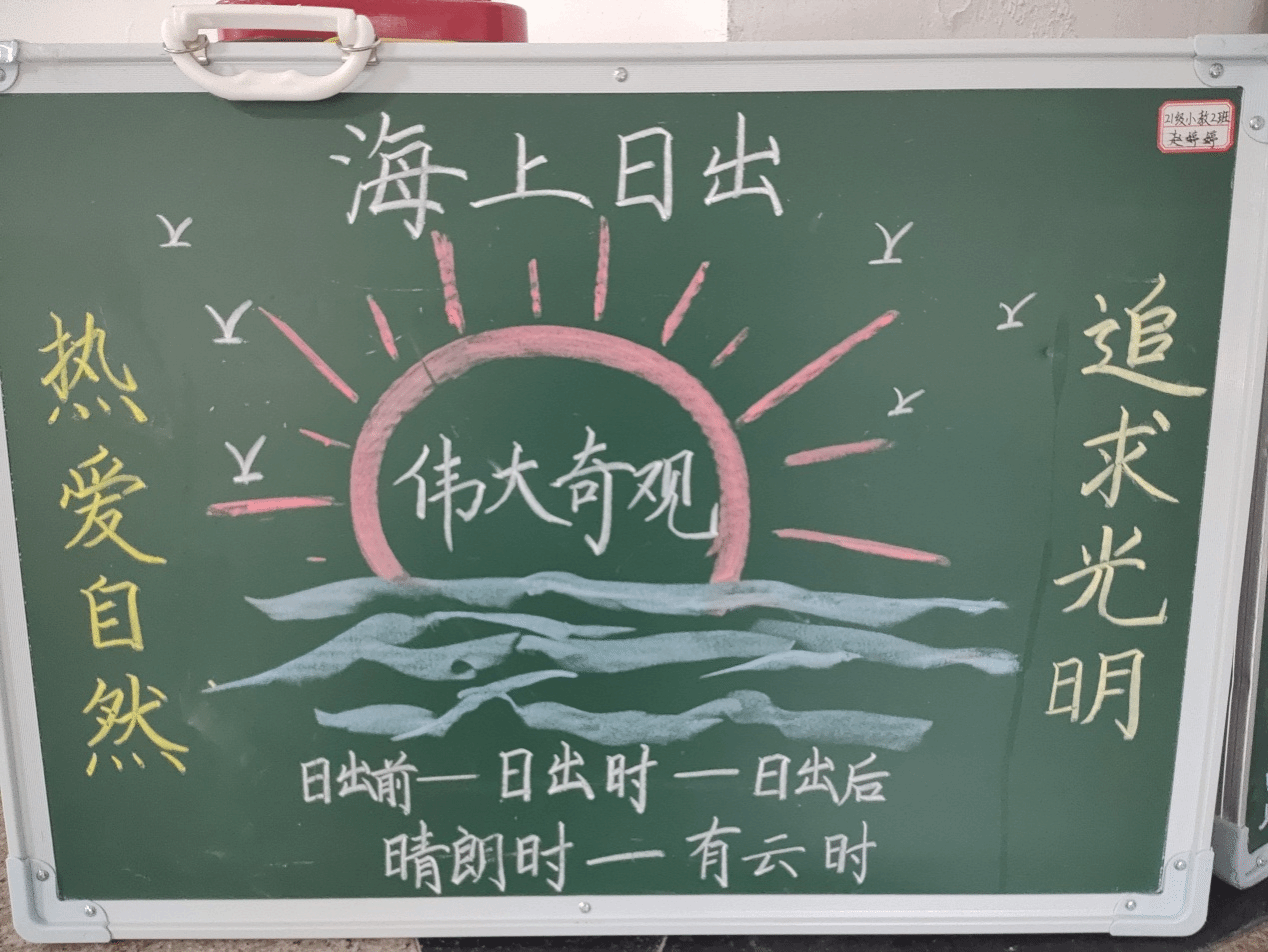 海上日出
21级小教2班
赵婷婷
热爱自然
伟大奇观
追求光明
日出前—日出时—日出后
晴朗时—有云时